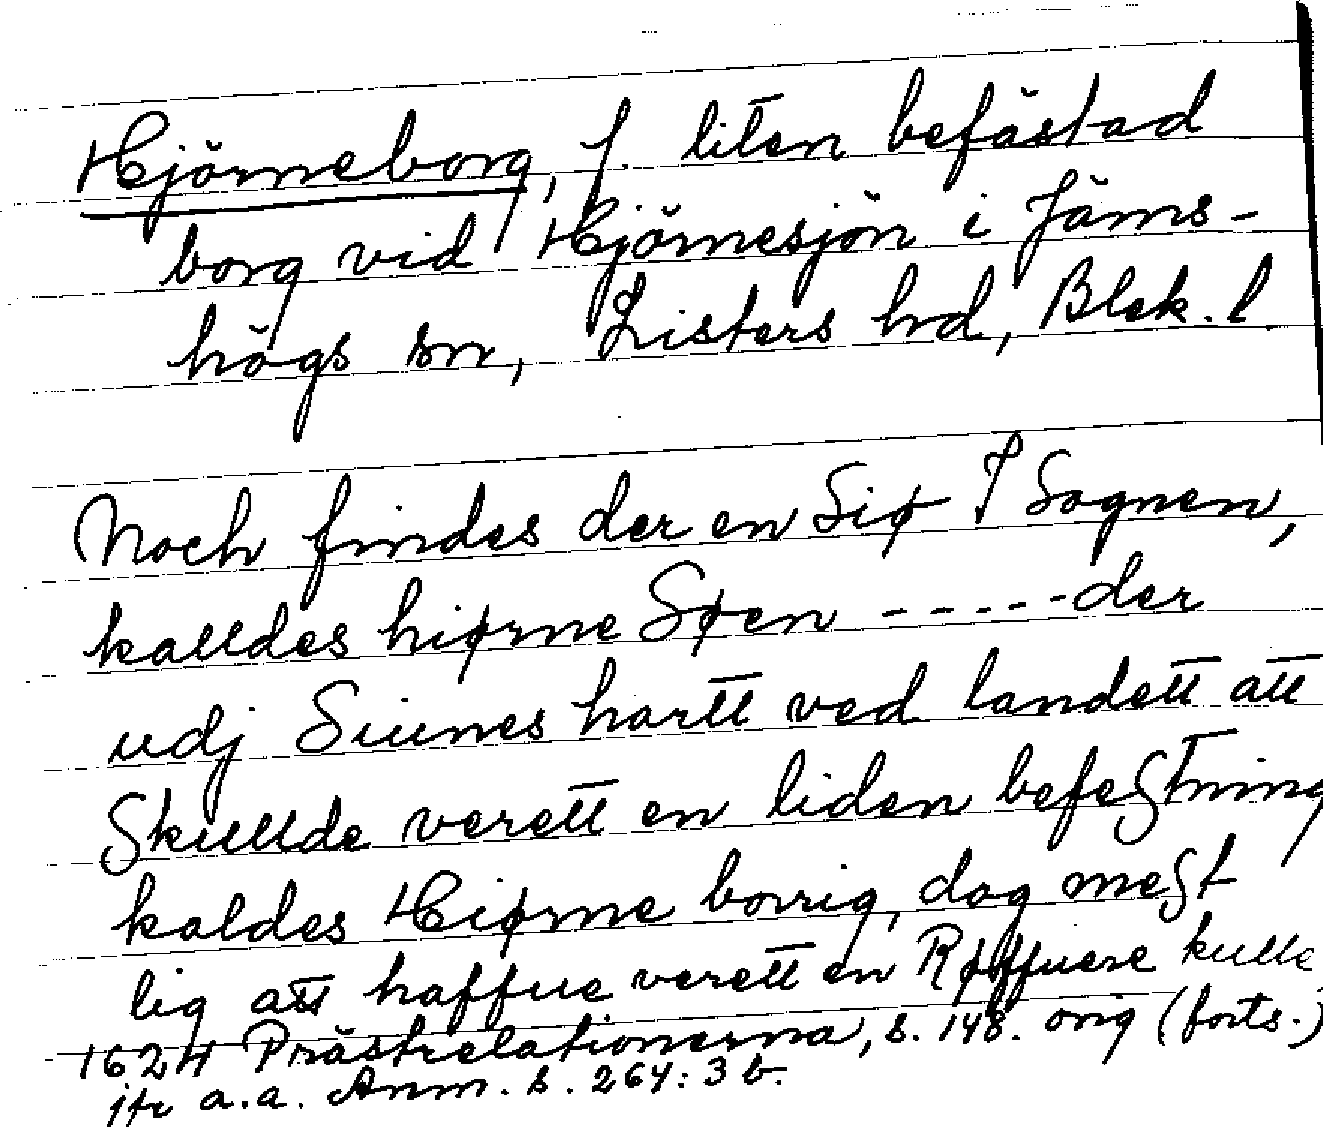 Hjörneborg, f. liten befästad
borg vid Hjörnesjön i Jäms-
högs sn, Listers hd, Blek. l
Noch findes der en Siø I Sognen,
kalldes hiørne Søen - - - - - der
udj Siunes hartt ved landett att
Skullde verett en liden befestning
kaldes Hiørne borrig, dog mest
lig att haffue verett en Røffuere kulle
1624 Prästrelationerna, s. 148. orig (forts.)
jfr a.a. Anm. s. 264: 3 b.